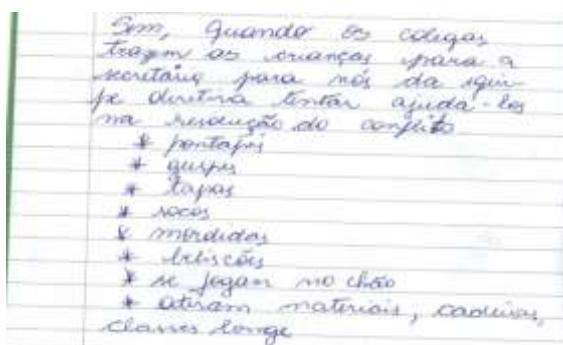 Sim, quando os colegas
trazem as crianças para a
secretaria para nós da equi-
pe diretiva tentar ajudá-los
na resolução do conflito
* pontapés
* guspes
* tapas
* socos
* mordidas
* beliscões
* se jogam no chão
* atiram materiais, cadeiras,
classes longe